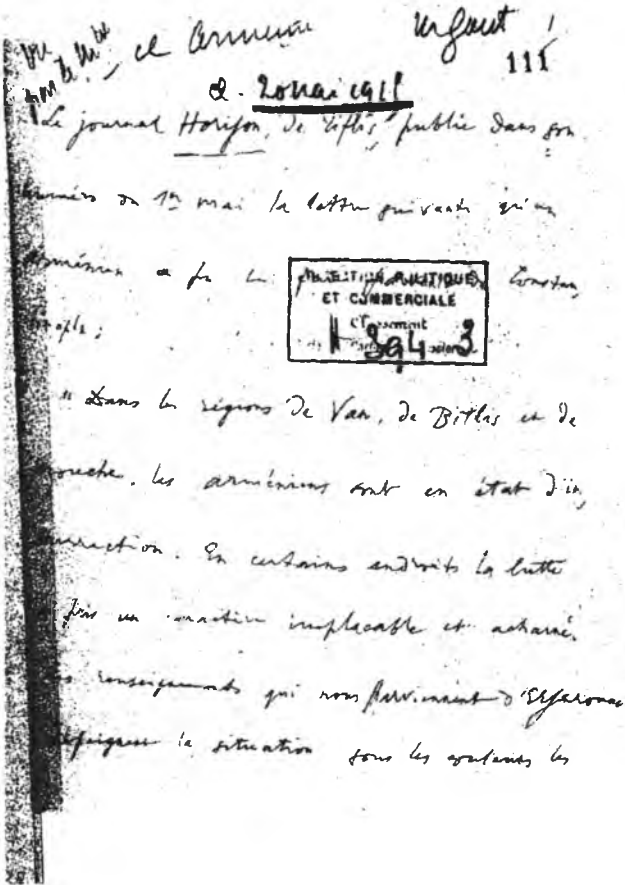 Urgent !
111
20 mai 1915
Le journal Horizon, de Tiflis, publie dans son
numéro du 1er mai la lettre suivante qu'un
Arménien a pu
DIRECTION POLITIQUE
ET COMMERCIALE
394 3
"Dans les régions de Van, de Bitlis et de
Mouche, les arméniens sont en état d'in,
surrection. En certains endroits la lutte
pris un caractère implacable et acharné.
renseignements qui nous parviennent d'Erzeroum
la situation sous les couleurs les